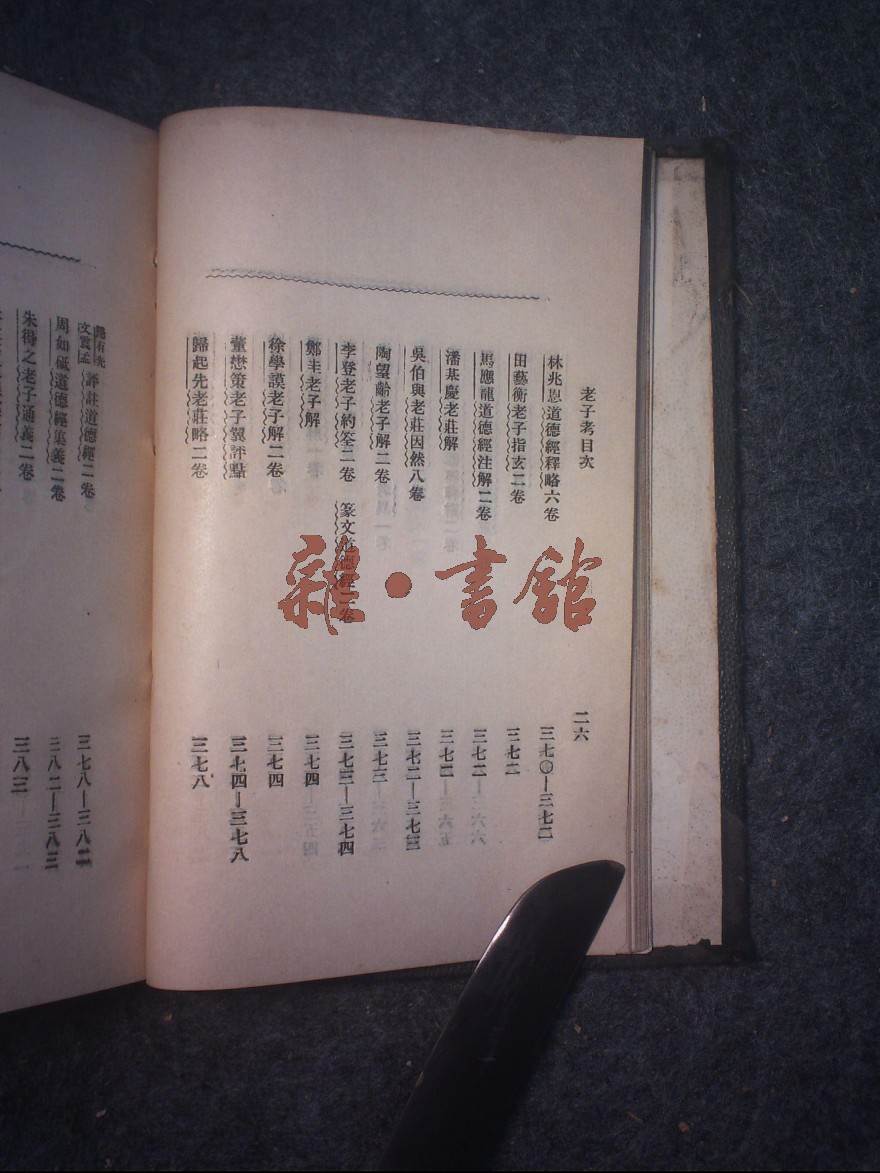 老子考目次
二六
林兆恩道德經釋略六卷
三七〇—三七二
田藝衡老子指玄二卷
三七二
馬應龍道德經注解二卷
三七二
潘基慶老莊解
三七二
吳伯與老莊因然八卷
三七二—三七三
陶望齡老子解二卷
三七三
李登老子約筌二卷 篆文道德經二卷
三七三—三七四
鄭圭老子解
三七四
徐學謨老子解二卷
三七四
董懋策老子翼評點
三七四—三七八
歸起先老莊略二卷
三七八
歸有光 文震孟 評註道德經二卷
三七八—三八二
周如砥道德經集義二卷
三八二—三八三
朱得之老子通義二卷
三八三
雜·書館